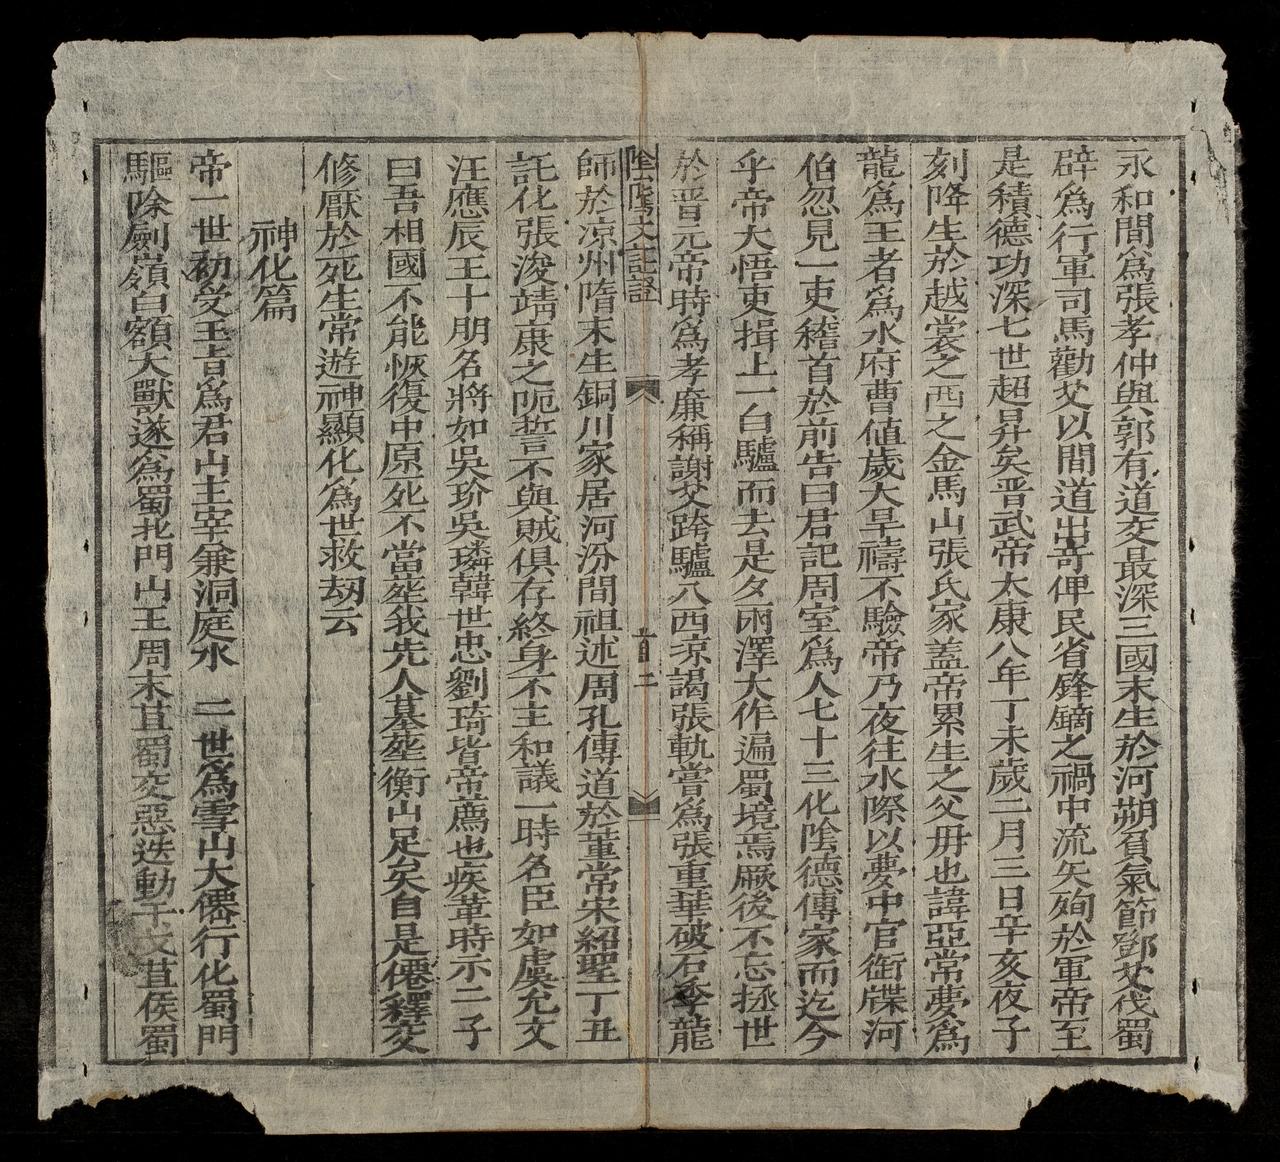 永和間爲張孝仲與郭有道交最深三國末生於河朔負氣節鄧艾伐蜀
辟爲行軍司馬勸艾以間道出竒俾民省鋒鏑之禍中流矢殉於軍帝至
是積德功深七世超昇矣晋武帝太康八年丁未歲二月三日辛亥夜子
刻降生於越裳之西之金馬山張氏家蓋帝累生之父毋也諱亞常夢爲
龍爲王者爲水府曹値歲大旱禱不驗帝乃夜往水際以夢中官銜牒河
伯忽見一吏稽首於前告曰君記周室爲人七十三化陰德傳家而迄今
乎帝大悟吏揖上一白驢而去是夕雨澤大作遍蜀境焉厥後不忘拯世
於晋元帝時爲孝廉稱謝艾跨驢入西凉謁張軌嘗爲張重華破石季龍
陰隲文註證
首 二
師於凉州隋末生銅川家居河汾間祖述周孔傳道於董常宋紹聖丁丑
託化張浚靖康之阨誓不與賊俱存終身不主和議一時名臣如虞允文
汪應辰王十朋名將如吳玠吳璘韓世忠劉琦皆帝薦也疾革時示二子
曰吾相國不能恢復中原死不當塟我先人墓塟衡山足矣自是僊釋交
修厭於死生常遊神顯化爲世救刼云
神化篇
帝一世初受玉旨爲君山主宰兼洞庭水 二世爲雪山大僊行化蜀門
驅除劍嶺白額大獸遂爲蜀北門山王周末苴蜀交惡迭動干戈苴侯蜀